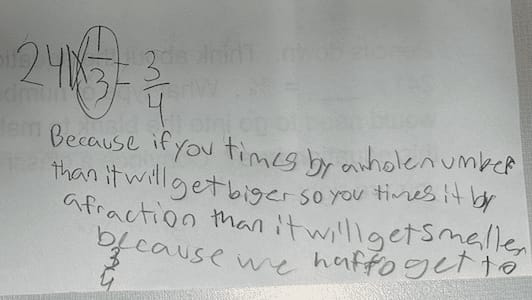 241 x 1/3 = 3/4
Because if you times by a whole number
than it will get biger so you times it by
a fraction than it will get smaller
because we haffo get to
3/4